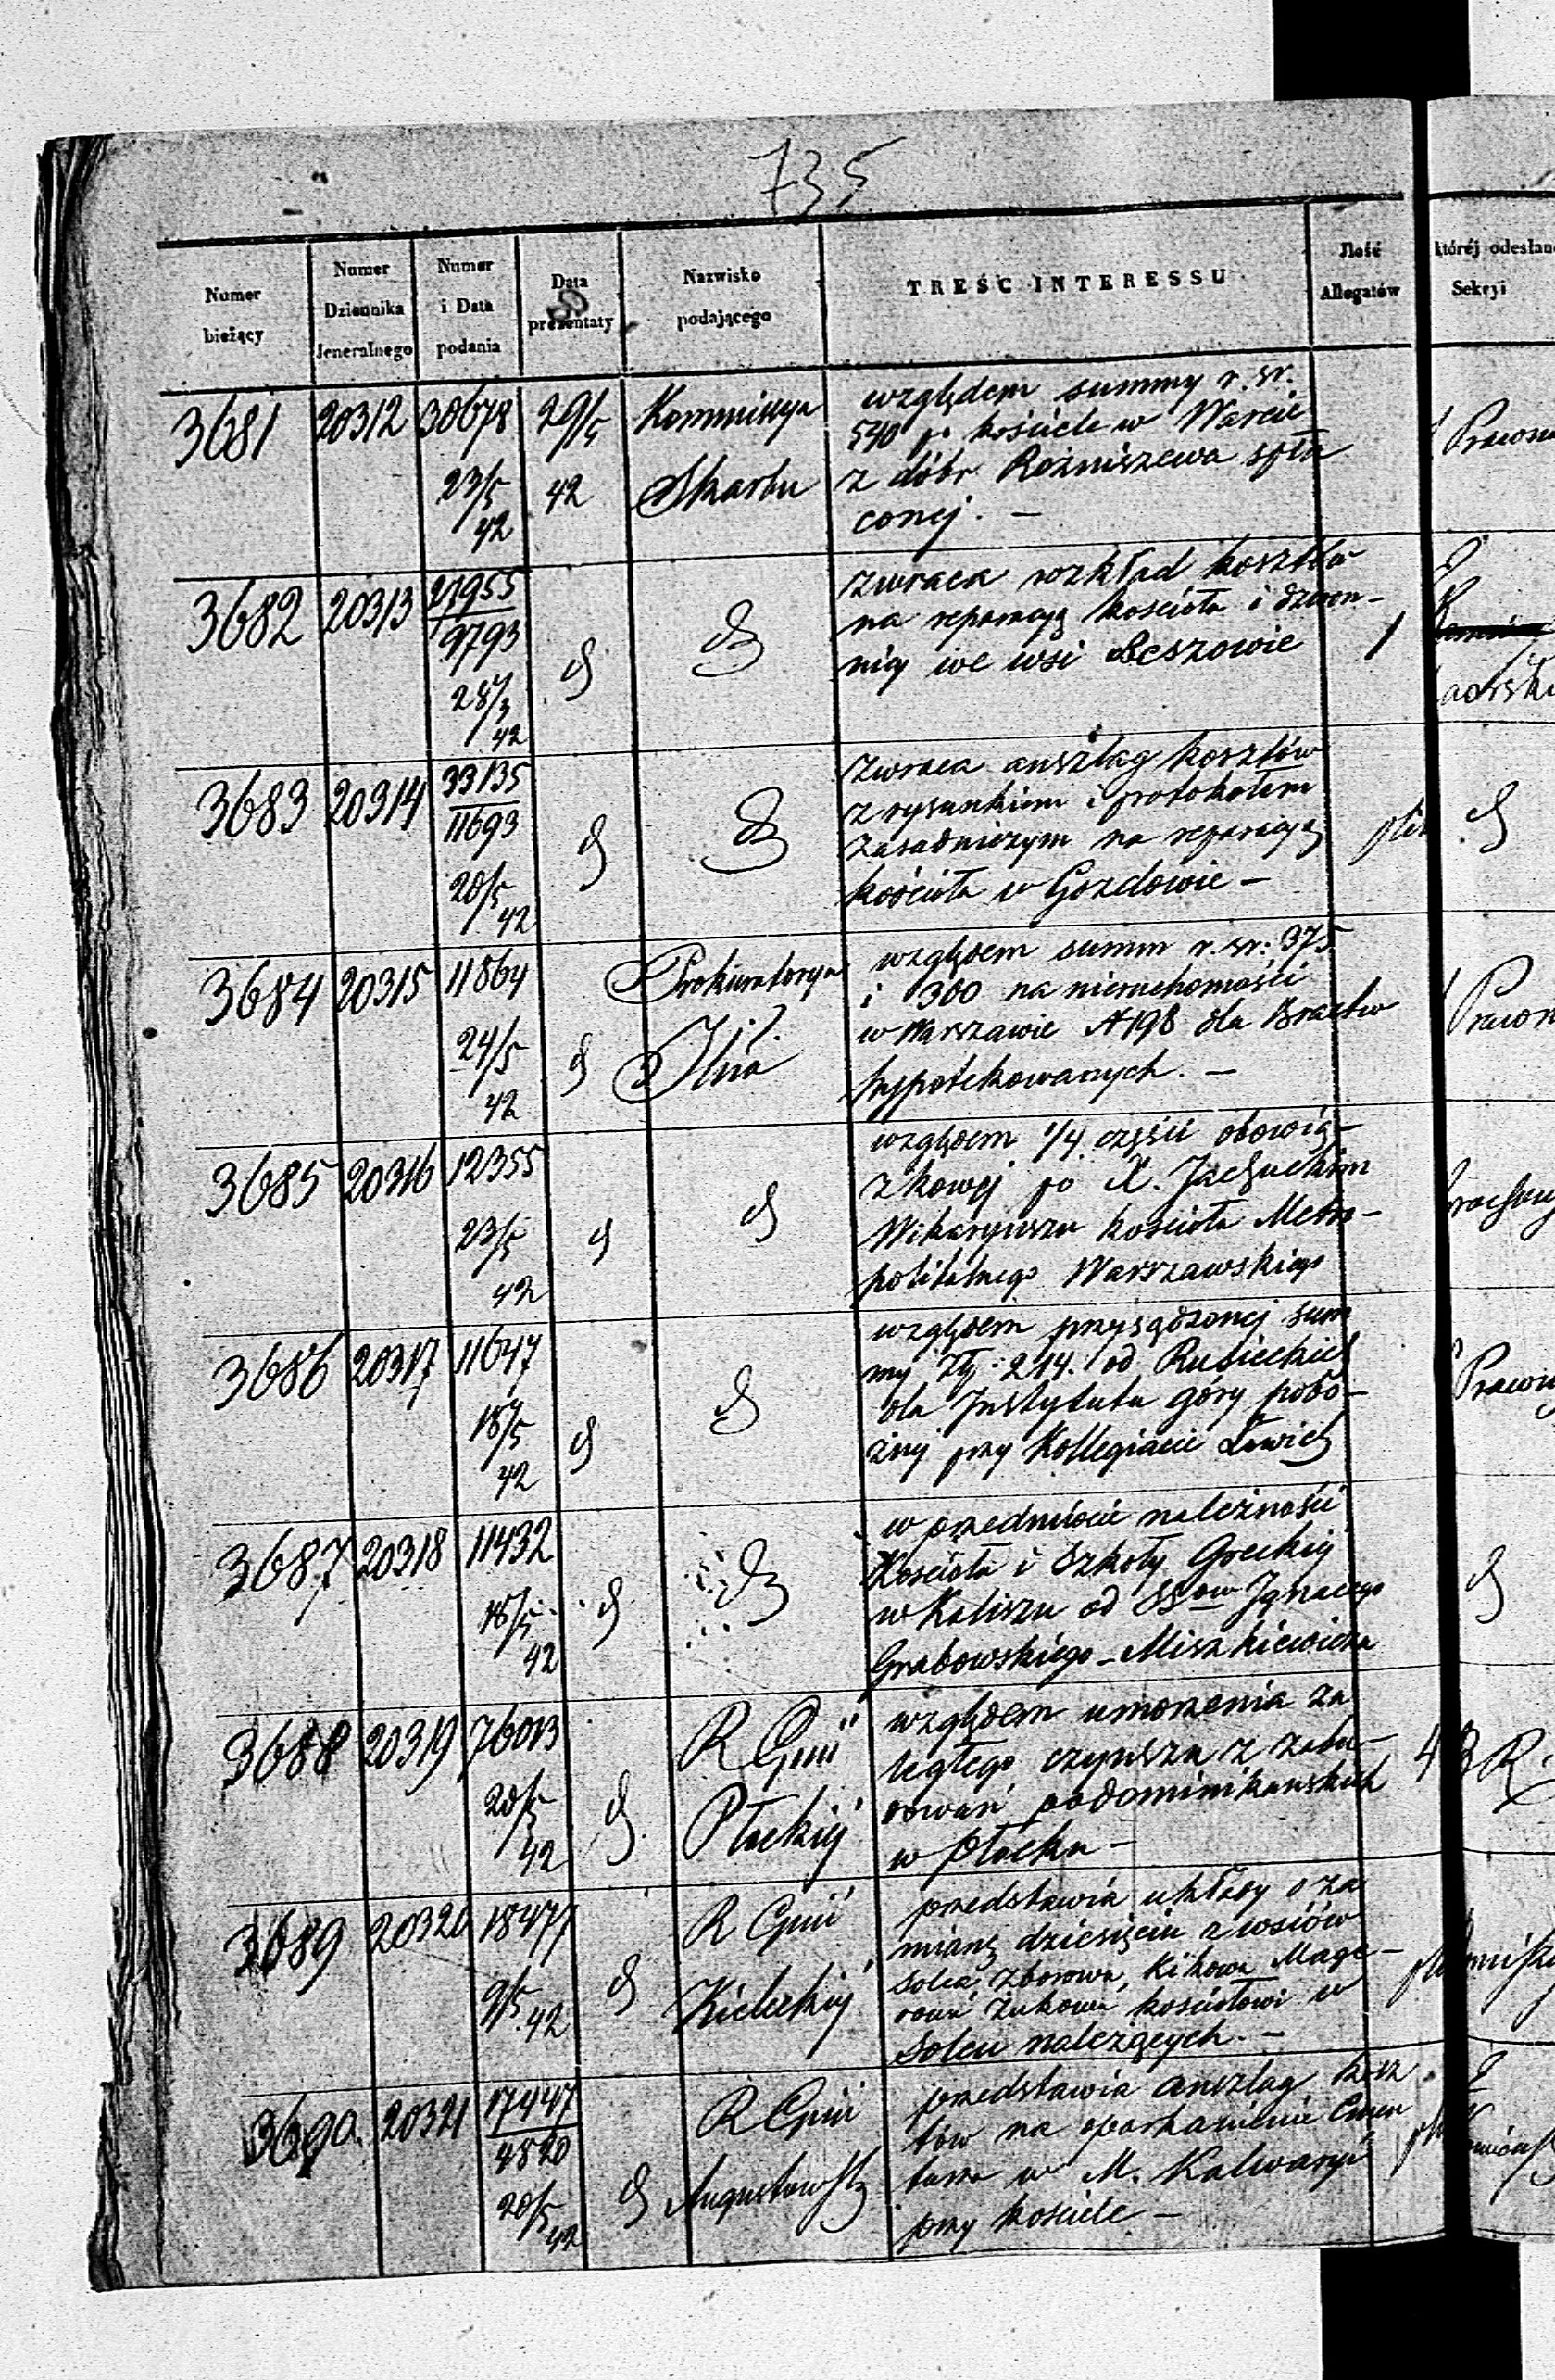 735
Numer bieżący
Numer Dziennika Jeneralnego
Numer i Data podania
Data prezentaty
Nazwisko podającego
TREŚC INTERESSU
Ilość Allegatów
której odesłano
Sekcyi
3681 20312 30678 23/5 42 29/5 42 Kommissya Skarbu
względem summy r. sr.
540 po kościele w Warcie
z dóbr Rożniszewa spła
conej. —
Prawn
3682 20313 27955/9793 28/3 42 d d
zwraca rozkład kosztów
na reparacyą kościoła i dzwon-
nicy we wsi Beszowie
1
3683 20314 33135/11693 20/5 42 d d
zwraca anszlag kosztów
z rysunkiem i protokołem
zasadniczym na reparacyą
kościoła w Gozdowie —
plik d
3684 20315 11864 24/5 42 d Prokuratorya
względem summ r. sr: 375
i 300 na nieruchomości
w Warszawie N 198 dla Bractw
hypotekowanych. —
Prawn
3685 20316 12355 23/5 42 d d
względem 1/4 części obowią-
zkowej po X. Jachuckim
Wikaryuszu kościoła Metro-
politalnego Warszawskiego
3686 20317 11647 18/5 42 d d
względem przysądzonej sum
my Złp. 214. od Rusieckich
dla Instytutu góry pobo-
żnej przy Kollegiacie Łowick
Prawn
3687 20318 11432 18/5 42 d d
w przedmiocie należności
Kościoła i Szkoły Greckiej
w Kaliszu od SSow Ignacego
Grabowskiego - Miszkiewicza
d
3688 20319 76013 20/5 42 d R Gnii Płockiej
względem umorzenia za
ległego czynszu z zabu-
dowań podominikańskich
w Płocku —
4 B R.
3689 20320 18477 9/5 42 d R Gnii Kieleckiej
przedstawia układy o za
mianę dziesięcin z wsiów
Solca, Zborowa, Kikowa Mage-
rowa Żukowa kościołowi w
Solcu należących. —
3690 20321 17447/4820 20/5 42 d R Gnii Augustows
przedstawia anszlag kosz
tów na oparkanienie Cmen
tarza w M. Kalwaryi
przy kościele —